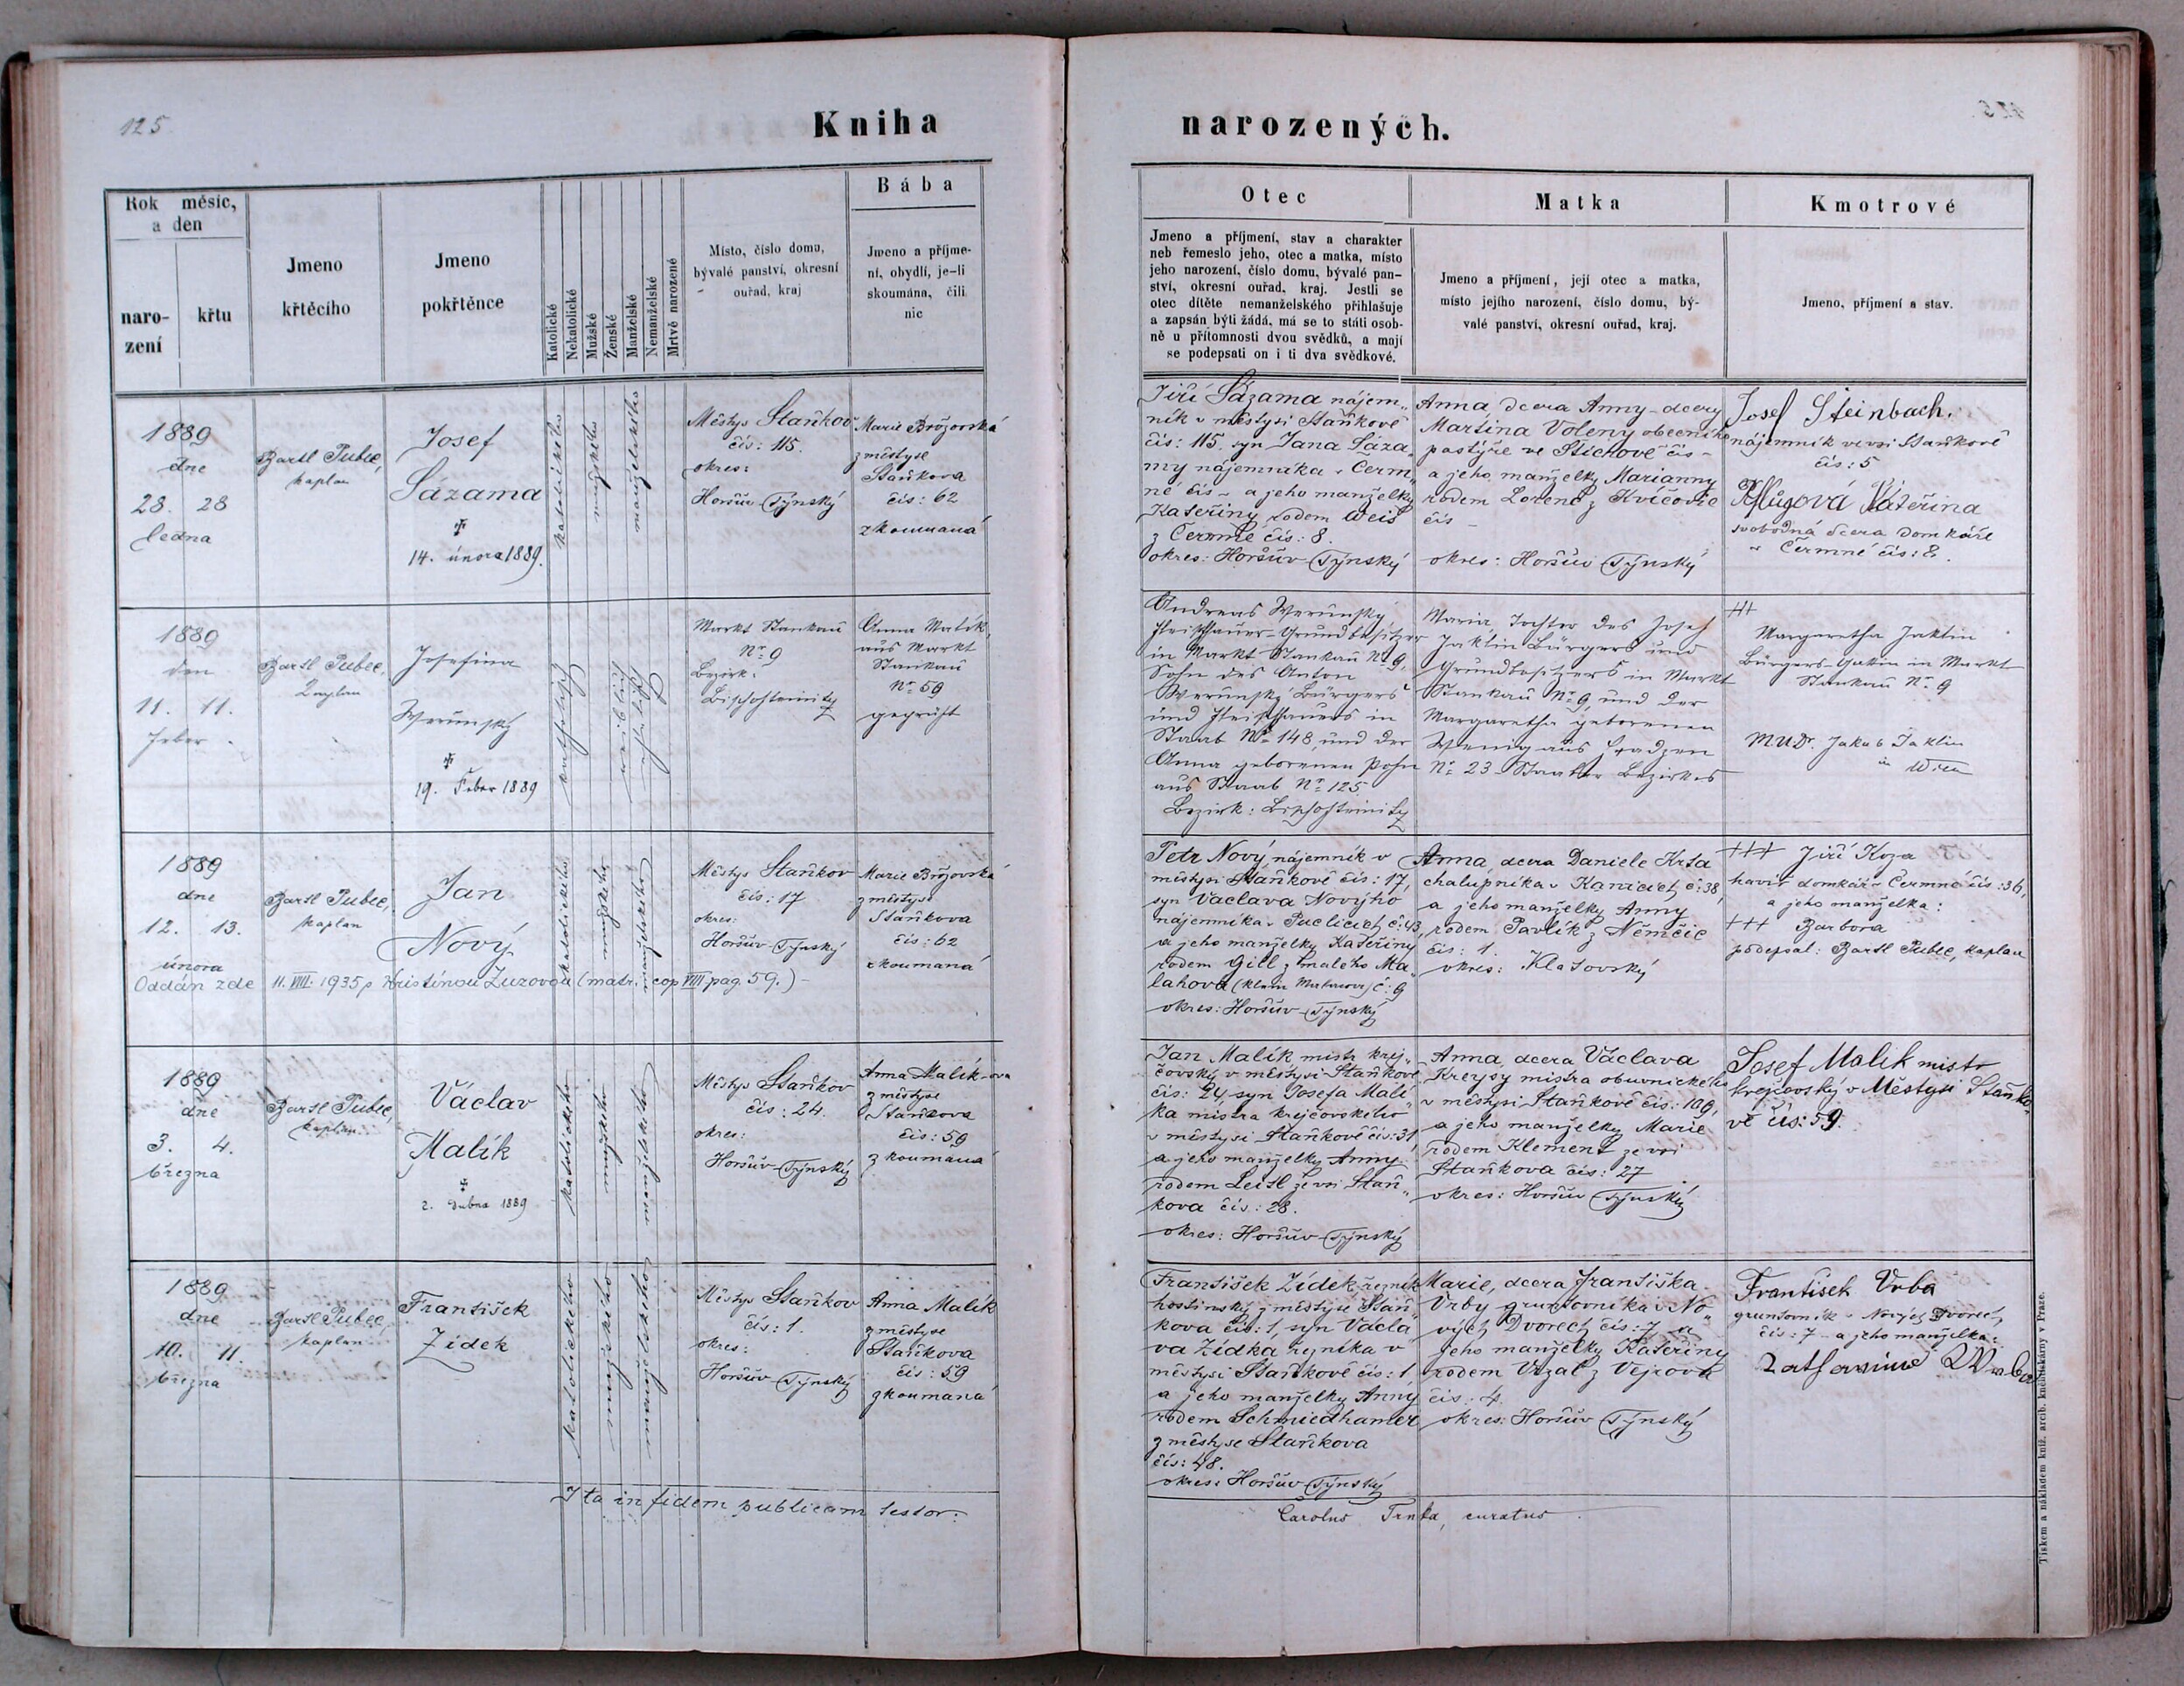 125
Kniha
narozených.
Rok měsíc,
a den
naro-
zení
křtu
Jmeno
křtěcího
Jmeno
pokřtěnce
Katolické
Nekatolické
Mužské
Ženské
Manželské
Nemanželské
Mrtvě narozené
Místo, číslo domu,
bývalé panství, okresní
ouřad, kraj
Bába
Jmeno a příjme-
ní, obydlí, je-li
skoumána, čili
nic
Otec
Jmeno a příjmení, stav a charakter
neb řemeslo jeho, otec a matka, místo
jeho narození, číslo domu, bývalé pan-
ství, okresní ouřad, kraj. Jestli se
otec dítěte nemanželského přihlašuje
a zapsán býti žádá, má se to státi osob-
ně u přítomnosti dvou svědků, a mají
se podepsati on i ti dva svědkové.
Matka
Jmeno a příjmení, její otec a matka,
místo jejího narození, číslo domu, bý-
valé panství, okresní ouřad, kraj.
Kmotrové
Jmeno, příjmení a stav.
1889
dne
28. 28
ledna
Bartl Pubec,
kaplan
Josef
Sázama
14. února 1889.
katolického
mužského
manželského
Městys Staňkov
čís: 115.
okres:
Horšův-Týnský
Marie Brožovská
z městyse
Staňkova
čís: 62
zkoumaná
Jiří Sázama nájem„
ník v městysi Staňkově
čís: 115. syn Jana Sáza„
my nájemníka v Čerm„
né čís - a jeho manželky
Kateřiny rodem Weis
z Čermné čís: 8.
okres: Horšův Týnský
Anna dcera Anny - dcery
Martina Voleny obecního
pastýře ve Štichově čís -
a jeho manželky Marianny
rodem Lorenc z Kvíčovic
čís -
okres: Horšův Týnský
Josef Steinbach.
nájemník ve vsi Staňkově
čís: 5
Pflugová Kateřina
svobodná dcera domkáře
v Čermné čís: 8.
1889
den
11. 11.
Feber
Bartl Pubec,
Kaplan
Josefina
Werunsky
19. Feber 1889
katholisch
weiblich
ehelich
Markt Stankau
Nr. 9
Bezirk:
Bischofteinitz
Anna Malik
aus Markt
Stankau
Nr. 59
geprüft
Andreas Werunsky
Fleischhauer-Grundbesitzer
in Markt Stankau Nr. 9,
Sohn des Anton
Werunsky Bürgers
und Fleischhauers in
Staab Nr. 148, und der
Anna geborenen Pohn
aus Staab Nr. 125
Bezirk: Bischofteinitz
Maria Tochter des Josef
Jaklin Bürgers und
Grundbesitzers in Markt
Stankau Nr. 9, und der
Margaretha geborenen
Wenig aus Hradzen
Nr. 23 Staaber Bezirkes
+++
Margaretha Jaklin
Bürgers-Gattin in Markt
Stankau Nr. 9
MUDr. Jakob Jaklin
in Wien
1889
dne
12. 13.
února
Bartl Pubec,
kaplan
Jan
Nový
katolického
mužského
manželského
Městys Staňkov
čís: 17
okres:
Horšův-Týnský
Marie Brožovská
z městyse
Staňkova
čís: 62
zkoumaná
Oddán zde 11. VIII. 1935 s Kristinou Zuzovou (matr. cop VIII pag. 59.) -
Petr Nový, nájemník v
městysi Staňkově čís: 17,
syn Václava Nového
nájemníka v Puclicích č: 43,
a jeho manželky Kateřiny
rodem Gill z malého Ma„
lahova (Klein Malowa) č: 9
okres: Horšův-Týnský
Anna, dcera Daniele Krsa
chalupníka v Kanicích č: 38,
a jeho manželky Anny
rodem Pavlík z Němčic
čís: 1.
okres: Klatovský
+++ Jiří Koza
havíř domkář v Čermné čís: 36,
a jeho manželka:
+++ Barbora
podepsal: Bartl Pubec, kaplan
1889
dne
3. 4.
března
Bartl Pubec,
kaplan
Václav
Malík
2. dubna 1889
katolického
mužského
manželského
Městys Staňkov
čís: 24.
okres:
Horšův-Týnský
Anna Malík-ova
z městyse
Staňkova
čís: 59
zkoumaná
Jan Malík mistr krej„
čovský v městysi Staňkově
čís: 24, syn Josefa Malí„
ka mistra krejčovského
v městysi Staňkově čís: 31
a jeho manželky Anny
rodem Leitl ze vsi Staň„
kova čís: 28.
okres: Horšův-Týnský
Anna, dcera Václava
Kreysy mistra obuvnického
v městysi Staňkově čís: 109,
a jeho manželky Marie
rodem Klement ze vsi
Staňkova čís: 27
okres: Horšův Týnský
Josef Malík mistr
krejčovský v Městysi Staňko
vě čís: 59.
1889
dne
10. 11.
března
Bartl Pubec,
kaplan
František
Zídek
katolického
mužského
manželského
Městys Staňkov
čís: 1
okres:
Horšův-Týnský
Anna Malík
z městyse
Staňkova
čís: 59
zkoumaná
František Zídek řezník
hostinský z městyse Staň„
kova čís: 1, syn Václa„
va Zídka řezníka v
městysi Staňkově čís: 1,
a jeho manželky Anny
rodem Schmiedhamer
z městyse Staňkova
čís: 48.
okres: Horšův-Týnský
Marie, dcera Františka
Vrby gruntovníka v No„
vých Dvorech čís: 7 a
jeho manželky Kateřiny
rodem Vrzal z Vejrova
čís: 4.
okres: Horšův Týnský
František Vrba
gruntovník v Nových Dvorech,
čís: 7 - a jeho manželka:
Katharina Wrba
Ita in fidem publicam testor:
Carolus Trnka, curatus.
Tiskem a nákladem kniž. arcib. knihtiskárny v Praze.